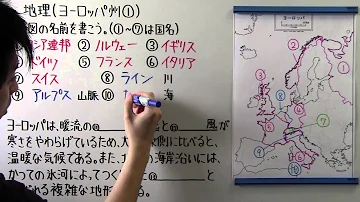 地理(ヨーロッパ州①)
図の名前を書こう。(①〜⑦は国名)
シア連邦 ② ノルウェー ③ イギリス
ドイツ ⑤ フランス ⑥ イタリア
スイス ⑧ ライン 川
⑨ アルプス 山脈 ⑩ 海
ヨーロッパは、暖流の@ と 風が
寒さをやわらげているため、大 東側にくらべると、
温暖な気候である。また、 の海岸沿いには、
かつての氷河によってつく @ と
れる複雑な地形
ヨーロッパ
①
②
③
④
⑤
⑥
⑦
⑧
⑨
⑩